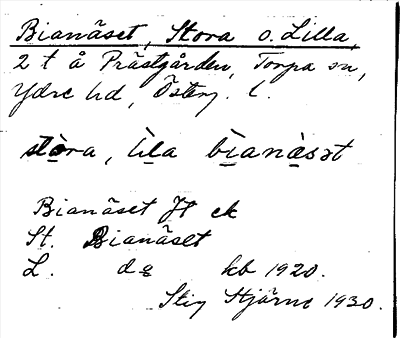 Bianäset, Stora o. Lilla,
2 t å Prästgården, Torpa sn,
Ydre hd, Österg. l.
stòra, lìla bìanàsət
Bianäset Jt ek
St. Bianäset
L. d:o kb 1920.
Stig Stjärne 1930.